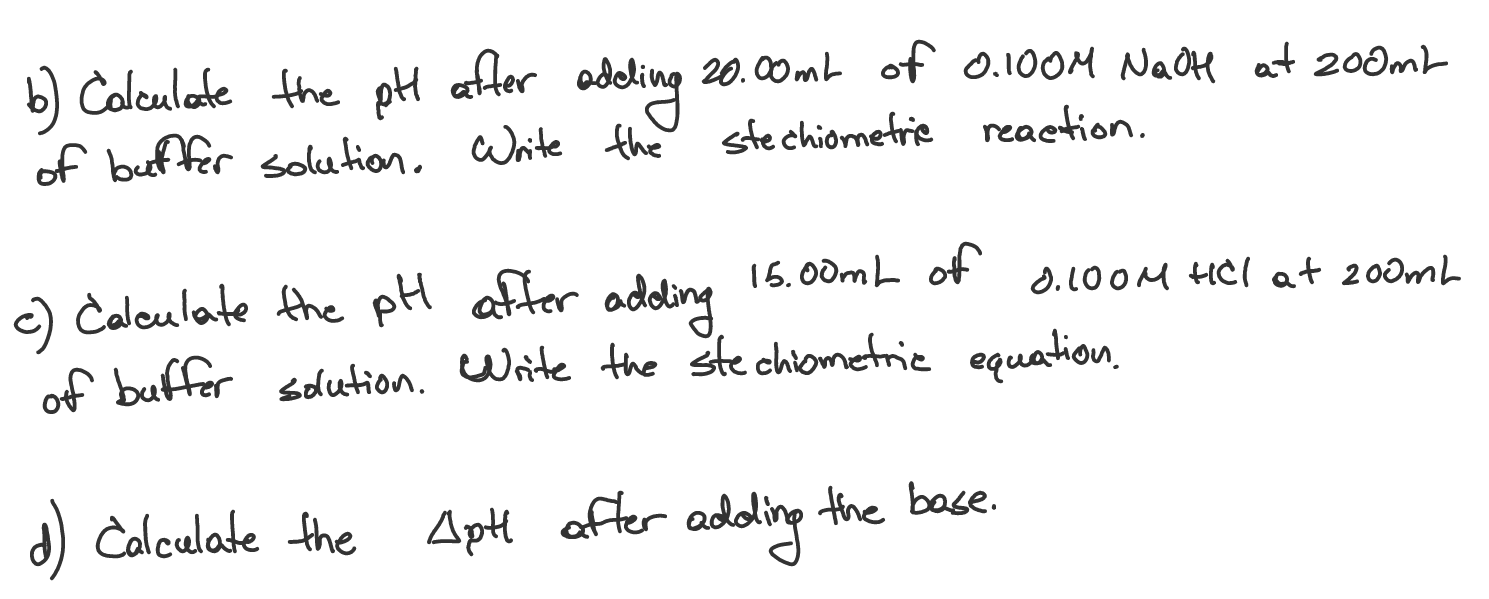 b) Calculate the pH after adding 20.00mL of 0.100M NaOH at 200mL
of buffer solution. Write the stechiometric reaction.
c) Calculate the pH after adding 15.00mL of 0.100M HCl at 200mL
of buffer solution. Write the stechiometric equation.
d) Calculate the ΔpH after adding the base.